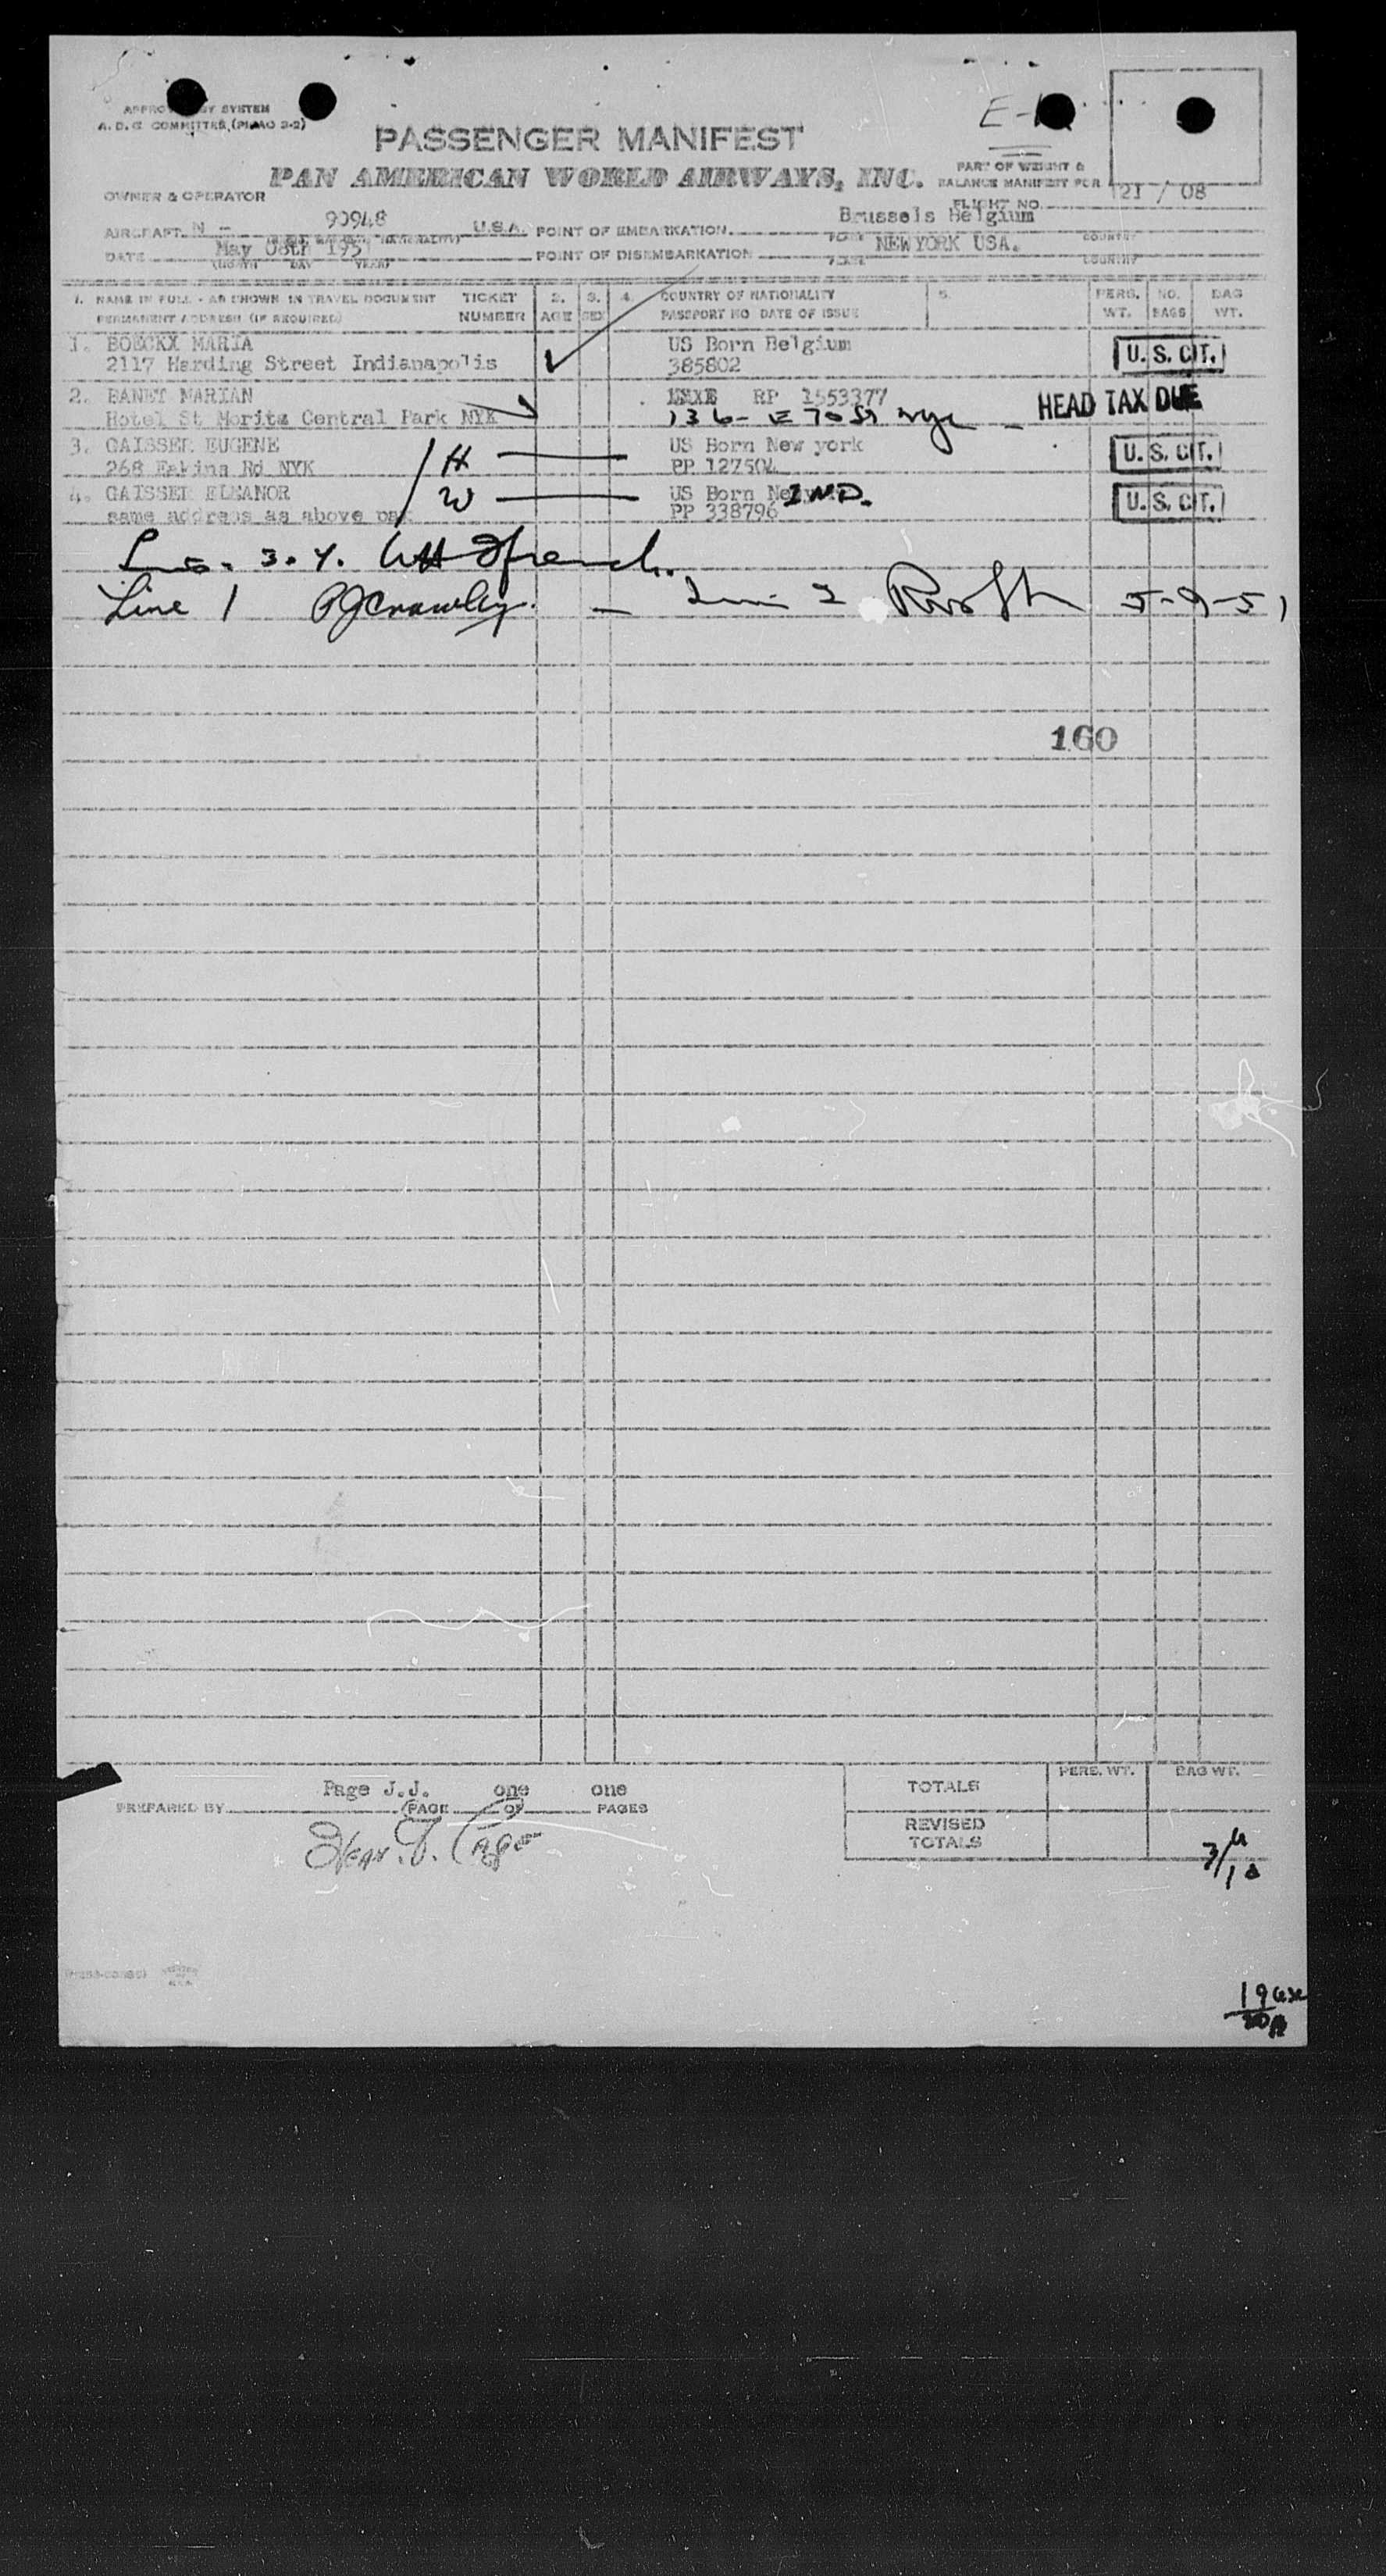 E-
A. D. C. COMMITTEE
PASSENGER MANIFEST
PAN AMERICAN WORLD AIRWAYS, INC.
PART OF WEIGHT &
BALANCE MANIFEST FOR
FLIGHT NO. 121 / 08
OWNER & OPERATOR
AIRCRAFT N - 90948 U.S.A. POINT OF EMBARKATION Brussels Belgium
PLACE COUNTRY
DATE May 08th 195 POINT OF DISEMBARKATION NEWYORK USA.
(MONTH DAY YEAR) PLACE COUNTRY
1. NAME IN FULL - AS SHOWN IN TRAVEL DOCUMENT TICKET 2. 3. 4. COUNTRY OF NATIONALITY 5. PERS. NO. BAG
PERMANENT ADDRESS (IF REQUIRED) NUMBER AGE SEX PASSPORT NO DATE OF ISSUE WT. BAGS WT.
1. BOECKX MARIA US Born Belgium U. S. CIT.
2117 Harding Street Indianapolis 385802
2. BANET MARIAN RP 1553377 HEAD TAX DUE
Hotel St Moritz Central Park NYK 136- E 70 St nyc
3. GAISSER EUGENE H US Born New york U. S. CIT.
268 Eakins Rd NYK PP 127504
4. GAISSER ELEANOR W US Born IND. U. S. CIT.
same address as above PP 338796
3.4.
Line 1 PJ Crowley - Line 2 5-9-51
160
Page J.J. one one
PREPARED BY (PAGE OF PAGES
TOTALS PERS. WT. BAG WT.
REVISED
TOTALS